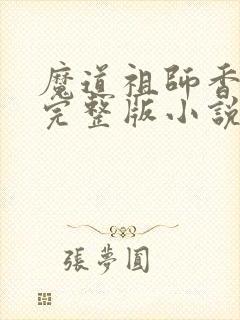 魔道祖師香
完整版小說
張夢圓